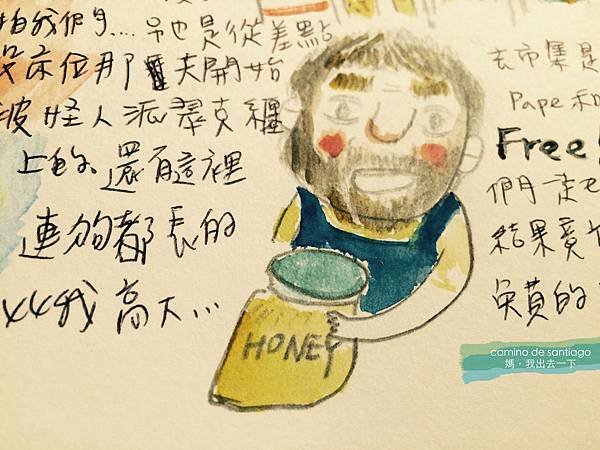 我們.... 也是從差點
沒床位那天開始
被怪人派翠克纏
上的、還有這裡
連狗都長的
比我高大...
HONEY
去市集是
Pape 和
Free
們走
結果竟
的
camino de santiago
媽，我出去一下